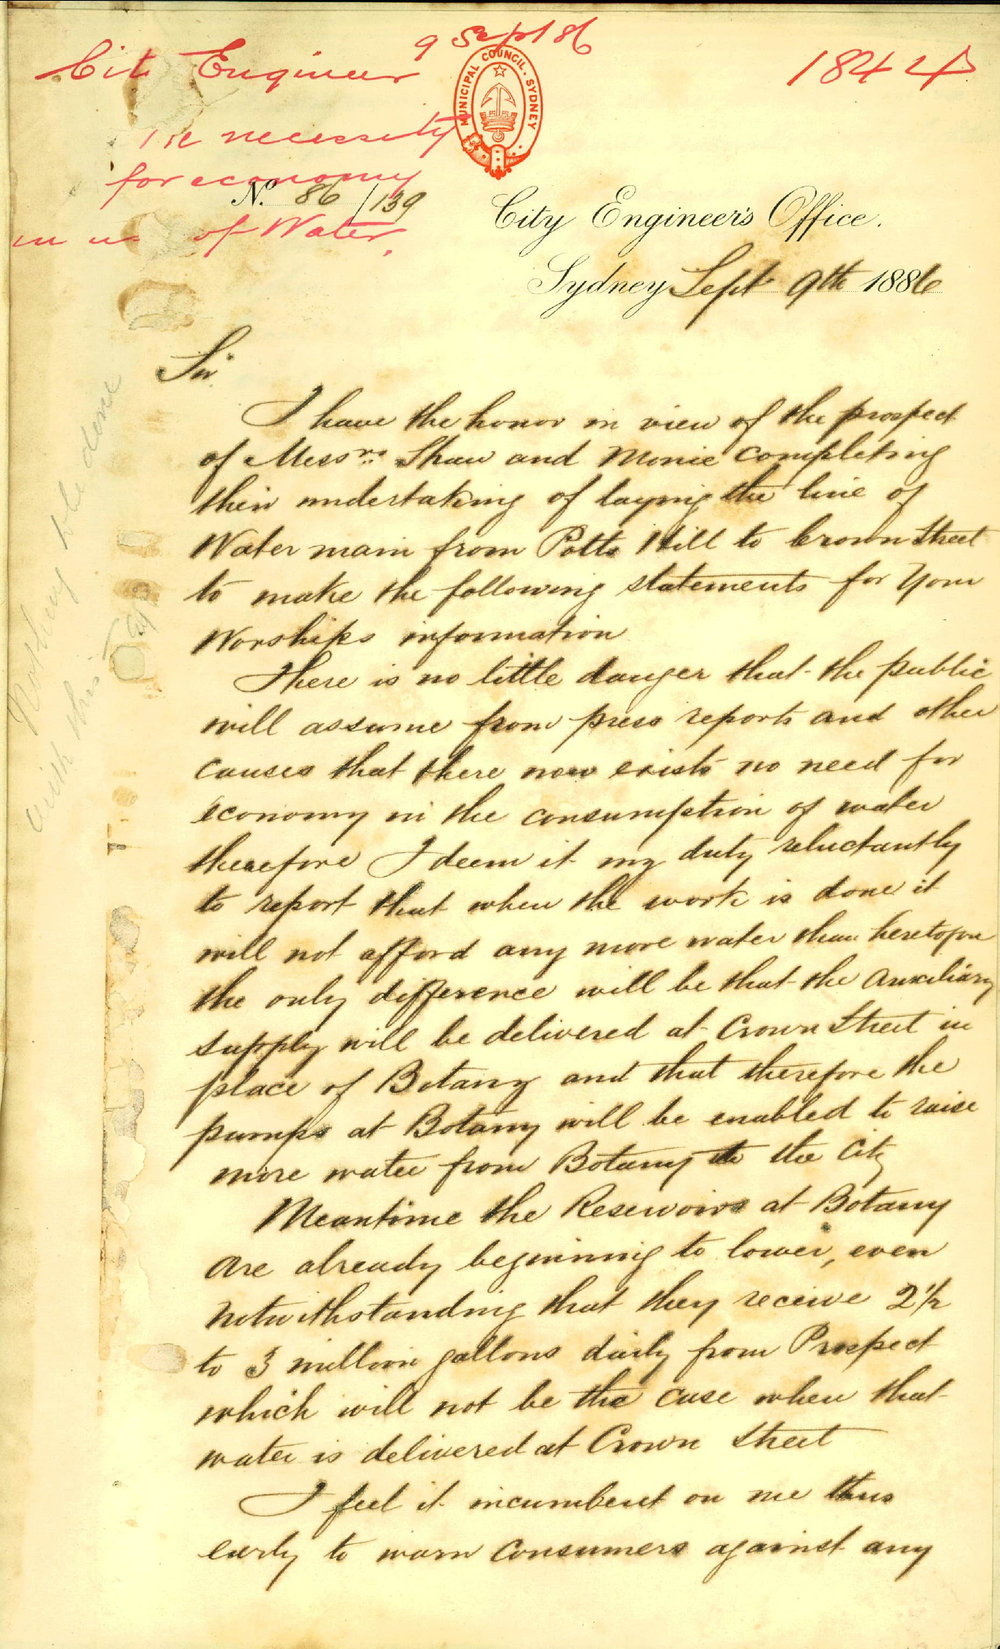 9 Sept 86
City Engineer
1844
MUNICIPAL COUNCIL. SYDNEY
re necessity
for economy
No. 86/139
in use of Water.
City Engineer's Office.
Sydney Sept 9th 1886
Sir
I have the honor in view of the prospect
of Messrs. Shaw and Monie completing
their undertaking of laying the line of
Water main from Potts Hill to Crown Street
to make the following statements for Your
Worships information
There is no little danger that the public
will assume from press reports and other
causes that there now exists no need for
economy in the consumption of water
therefore I deem it my duty reluctantly
to report that when the work is done it
will not afford any more water than heretofore
the only difference will be that the Auxiliary
supply will be delivered at Crown Street in
place of Botany and that therefore the
pumps at Botany will be enabled to raise
more water from Botany to the City
Meantime the Reservoirs at Botany
are already beginning to lower, even
notwithstanding that they receive 2 1/2
to 3 million gallons daily from Prospect
which will not be the case when that
water is delivered at Crown Street
I feel it incumbent on me thus
early to warn consumers against any
Nothing to be done
with this